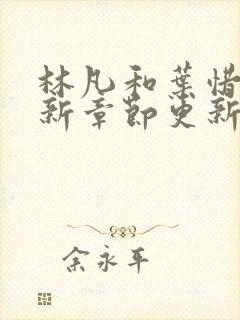 林凡和葉惜
新章節更新
余永平